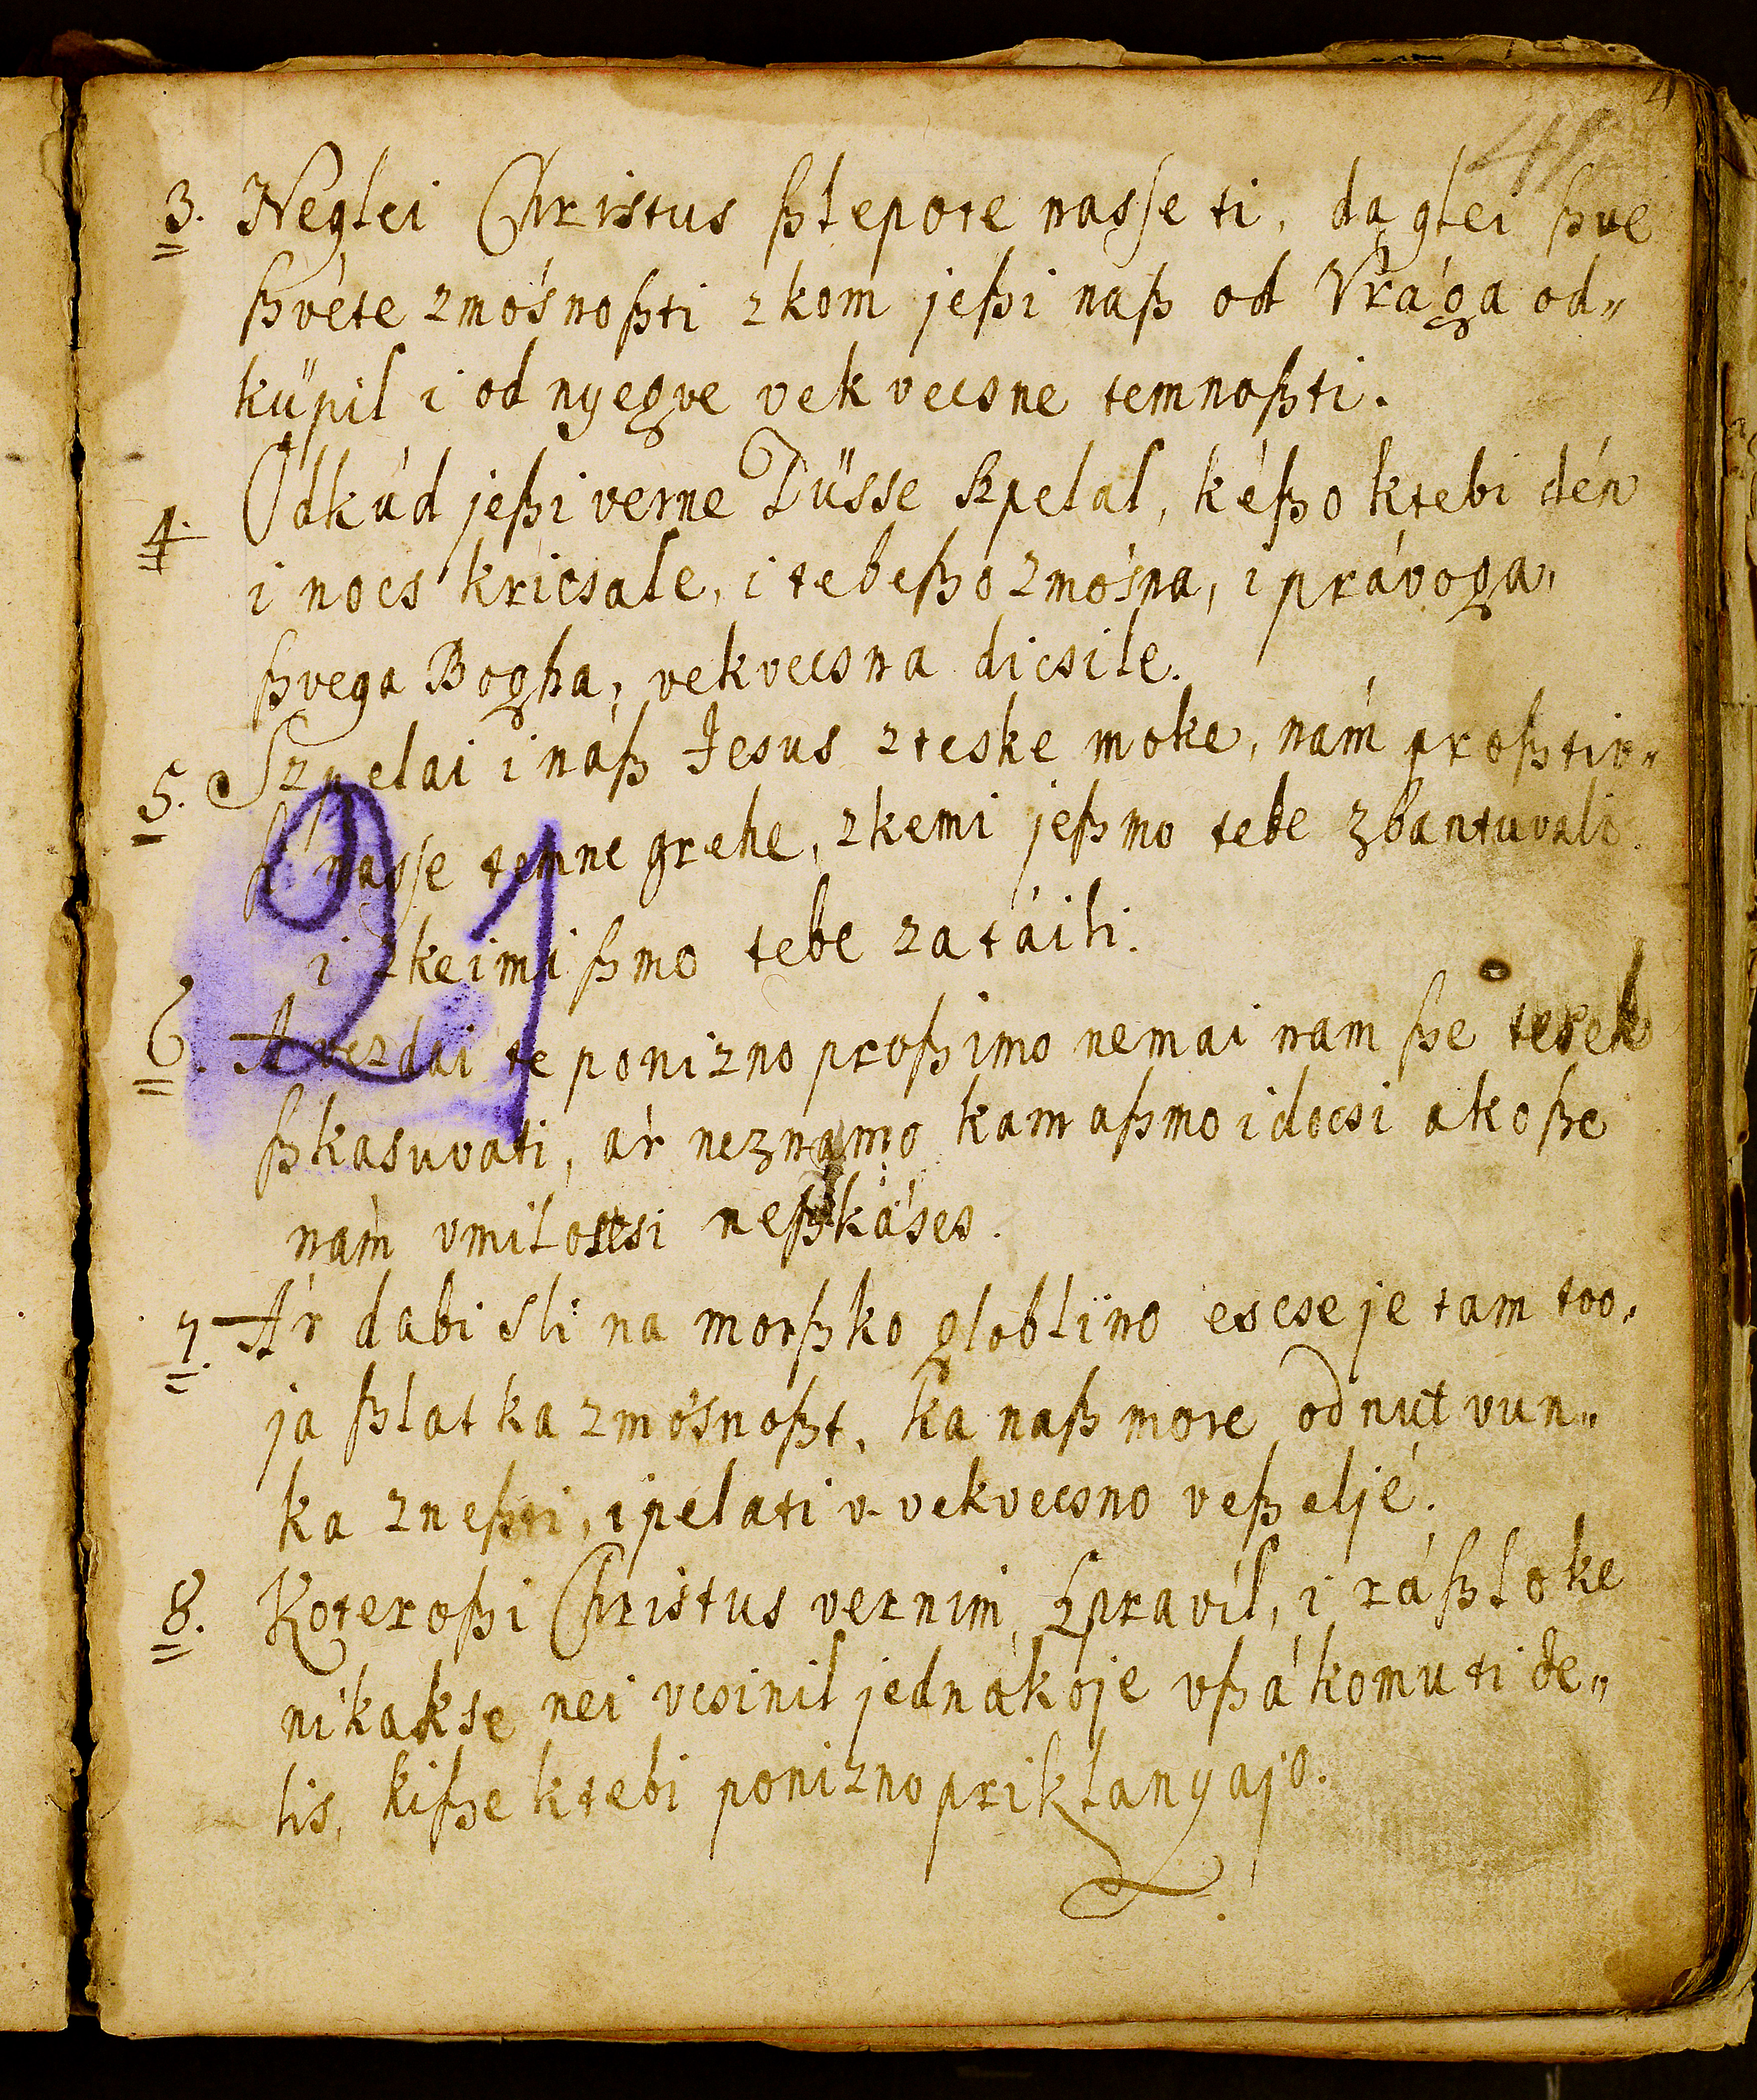 41
3. Neglei Christus ßlepote nasse ti, da glei ßve
ßvéte zmósnoßti z kom jeßi naß od Vrága od„
küpil i od nyegve vek vecsne temnoßti.
4. Odkúd jeßi verne Düsse szpelal, kéßo ktebi dén
i nocs kricsale, i tebeßo zmósna, i právoga„
ßvega Bogha, vekvecsna dicsile.
5. Szpelai i náß Jesus zteske moke, nám proßtio„
nasse temne grehe, zkemi jeßmo tebe zbantuvali
i zkeimi ßmo tebe zatáili.
21
6. A vezdai te ponizno proßimo nemai nam ße tesek
ßkasuvati, ár neznamo kam aßmo idocsi ako ße
nám vmilosesi neßkáses.
7. Ár dabi sli na morßko globlino escse je tam too„
ja ßlatka zmósnoßt, ka naß more odnut vun„
ka zneßti, i pelati v-vekvecsno veßeljé.
8. Koteroßi Christus vernim szpravil, i ráßloke
nikakse nei vcsinil jednákoje vßákomu ti de„
lis, kiße ktebi ponizno priklanyajo.